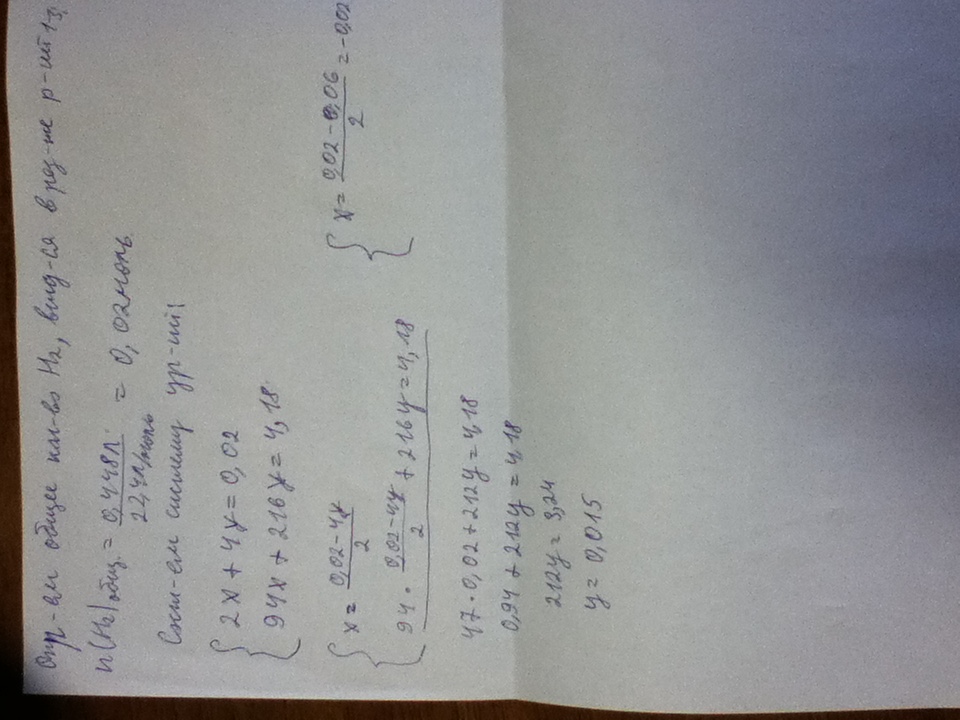 Опр-ем общее кол-во H₂, выд-ся в рез-те р-ций 1-3.
n(H₂)общ. = 0,448л / 22,4л/моль = 0,02моль
Сост-ем систему ур-ий:
{ 2x + 4y = 0,02
94x + 216y = 4,18
{ x = (0,02 - 4y) / 2
94 · (0,02 - 4y) / 2 + 216y = 4,18
{ x = (0,02 - 0,06) / 2 = -0,02
47 · 0,02 + 212y = 4,18
0,94 + 212y = 4,18
212y = 3,24
y = 0,015